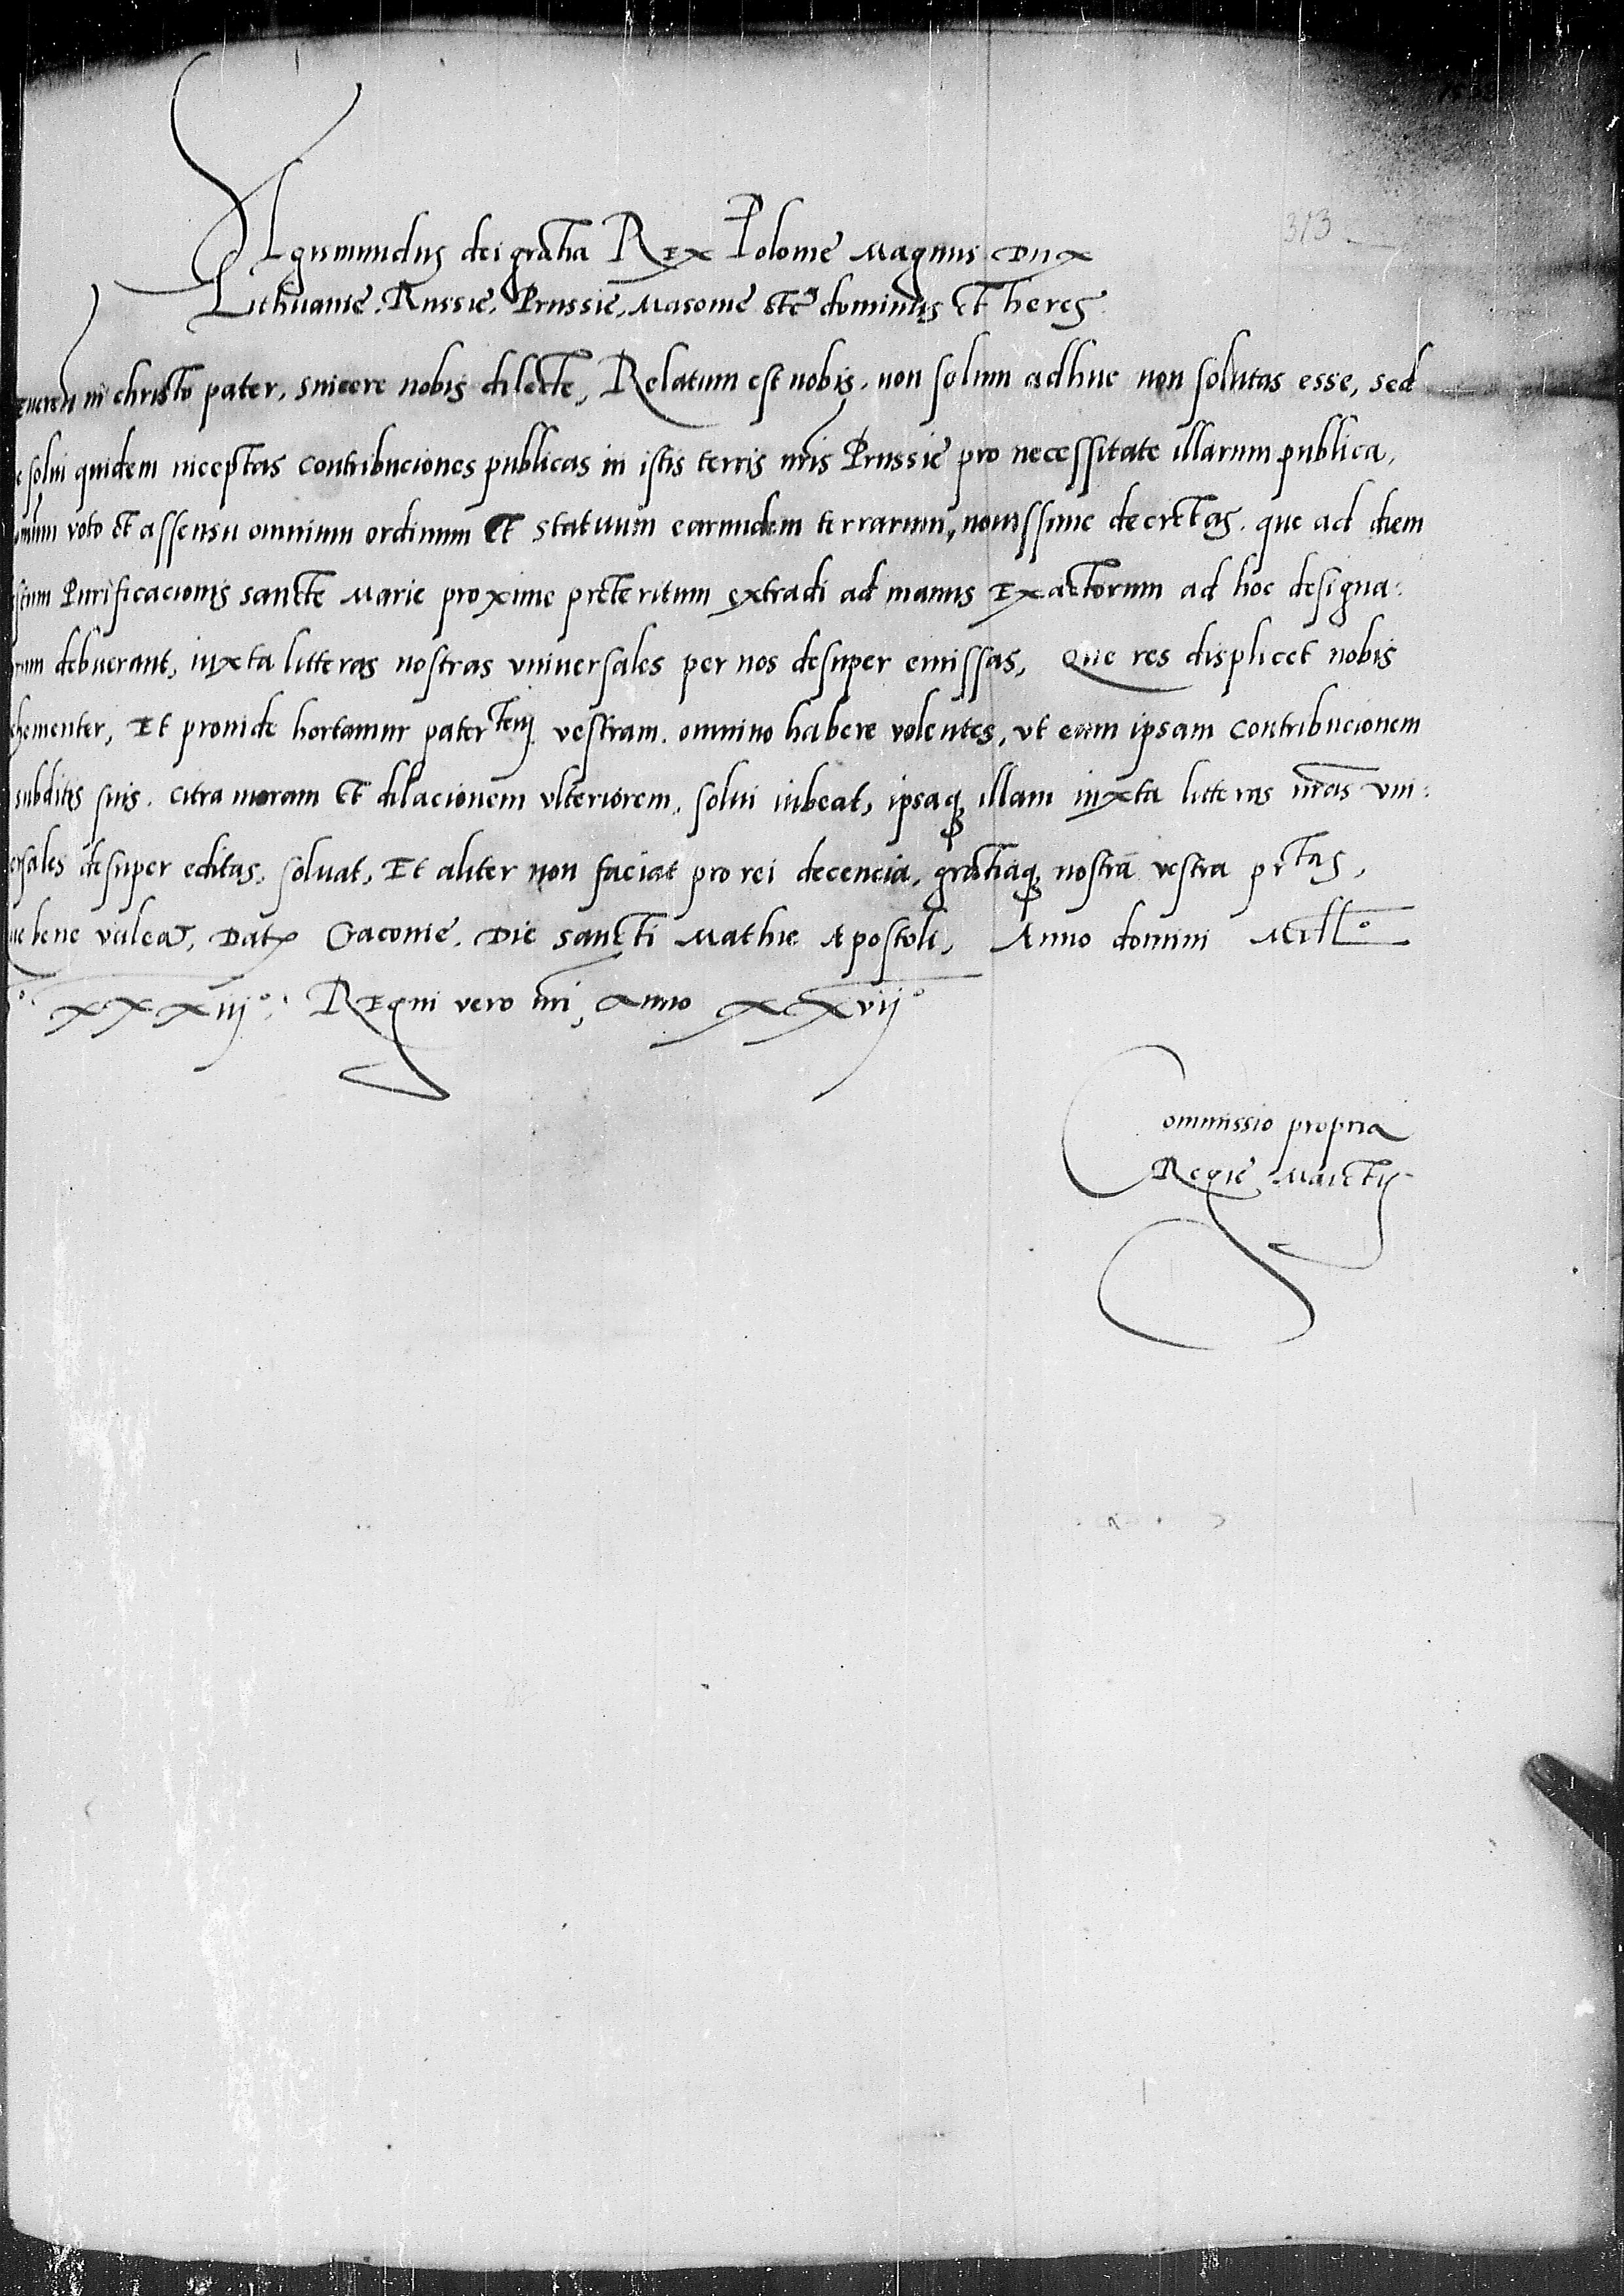 313
Sigismundus dei gratia Rex Polonie Magnus Dux
Lithuanie, Russie, Prussie, Masouie etc dominus et heres
Reueren in christo pater, sincere nobis dilecte, Relatum est nobis, non solum adhuc non solutas esse, sed
solui quidem inceptas contribuciones publicas in istis terris nris Prussie pro necessitate illarum publica,
voto et assensu omnium ordinum et statuum earundem terrarum, nouissime decretas. que ad diem
stum Purificacionis sancte Marie proxime preteritum extradi ad manus Exactorum ad hoc designa:
rum debuerant, iuxta litteras nostras vniuersales per nos desuper emissas, Que res displicet nobis
ehementer, Et proinde hortamur pater tem vestram. omnino habere volentes, vt eam ipsam contribucionem
subditis suis. citra moram et dilacionem vlteriorem, solui iubeat, ipsaq illam iuxta litteras nras vni:
ersales desuper editas, soluat, Et aliter non faciat pro rei decencia, gratiaq nostra vestra prtas,
ue bene valeat, Dat Cracouie, Die Sancti Mathie Apostoli, Anno domini Mill°
xxxiij°, Regni vero nri, Anno xxvij°
Commissio propria
Regie Maietis